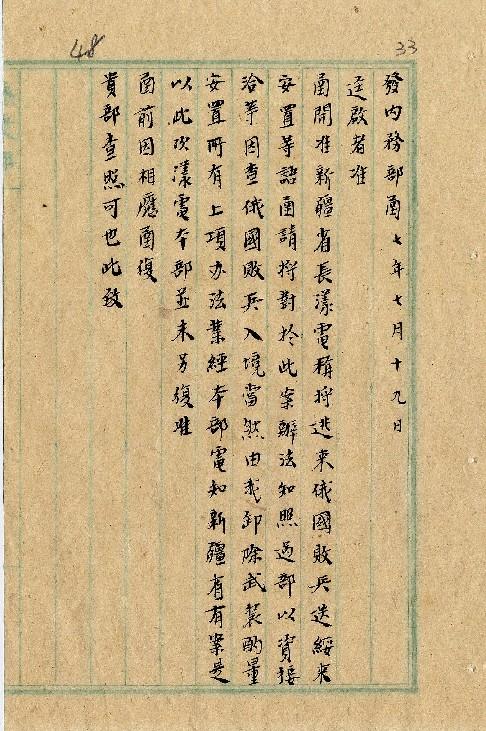 48
33
發內務部函七年七月十九日
逕啟者准
函開准新疆省長漾電稱將逃來俄國敗兵送綏來
安置等語函請將對於此案辦法知照過部以資接
洽等因查俄國敗兵入境當然由我卸除武裝酌量
安置所有上項办法業經本部電知新疆省有案是
以此次漾電本部並未另復准
函前因相應函復
貴部查照可也此致